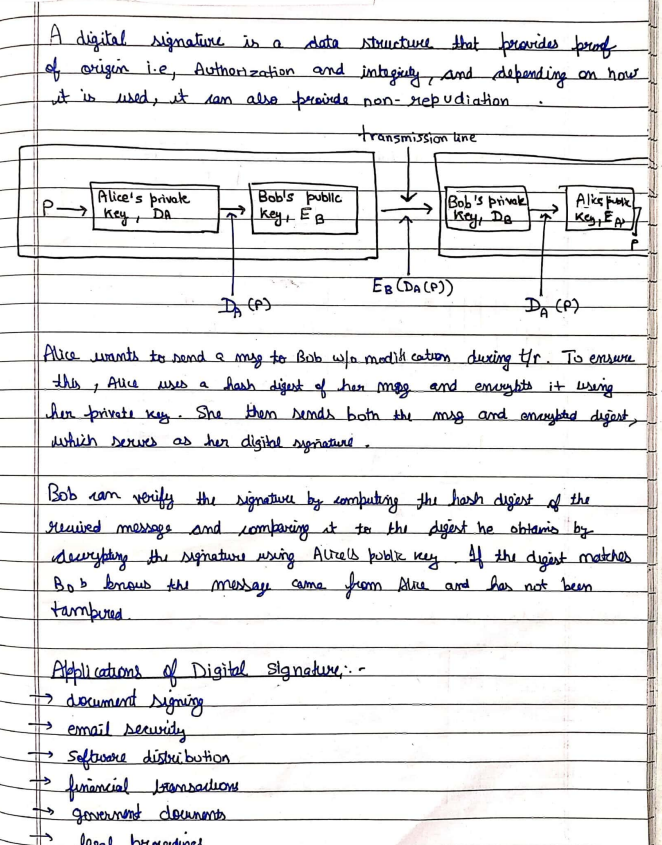 A digital signature is a data structure that provides proof
of origin i.e, Authorization and integrity, and depending on how
it is used, it can also provide non-repudiation .
transmission line
P → Alice's private key, DA → Bob's public key, EB → Bob's private key, DB → Alice public key, EA
P
DA (P)
EB (DA(P))
DA (P)
Alice wants to send a msg to Bob w/o modification during t/r. To ensure
this, Alice uses a hash digest of her msg and encrypts it using
her private key. She then sends both the msg and encrypted digest,
which serves as her digital signature.
Bob can verify the signature by computing the hash digest of the
received message and comparing it to the digest he obtains by
decrypting the signature using Alice's public key. If the digest matches
Bob knows the message came from Alice and has not been
tampered.
Applications of Digital Signature:-
→ document signing
→ email security
→ Software distribution
→ financial transactions
→ government documents
→ legal